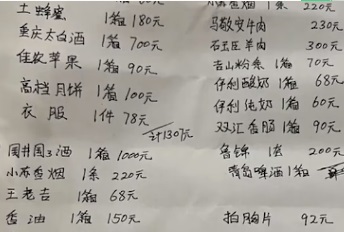 土蜂蜜 1箱180元
重庆太白酒 1箱700元
佳农苹果 1箱90元
高档月饼 1盒100元
衣服 1件78元
计1307元
国井国3酒 1箱1000元
小苏香烟 1条220元
王老吉 1箱68元
香油 1箱150元
小苏香烟 1条220元
马敬安牛肉 230元
羊肉 300元
粉条 1箱70元
伊利酸奶 1箱68元
伊利纯奶 1箱60元
双汇香肠 1箱90元
鲁锦 1套 200元
青岛啤酒1箱
拍胸片 92元